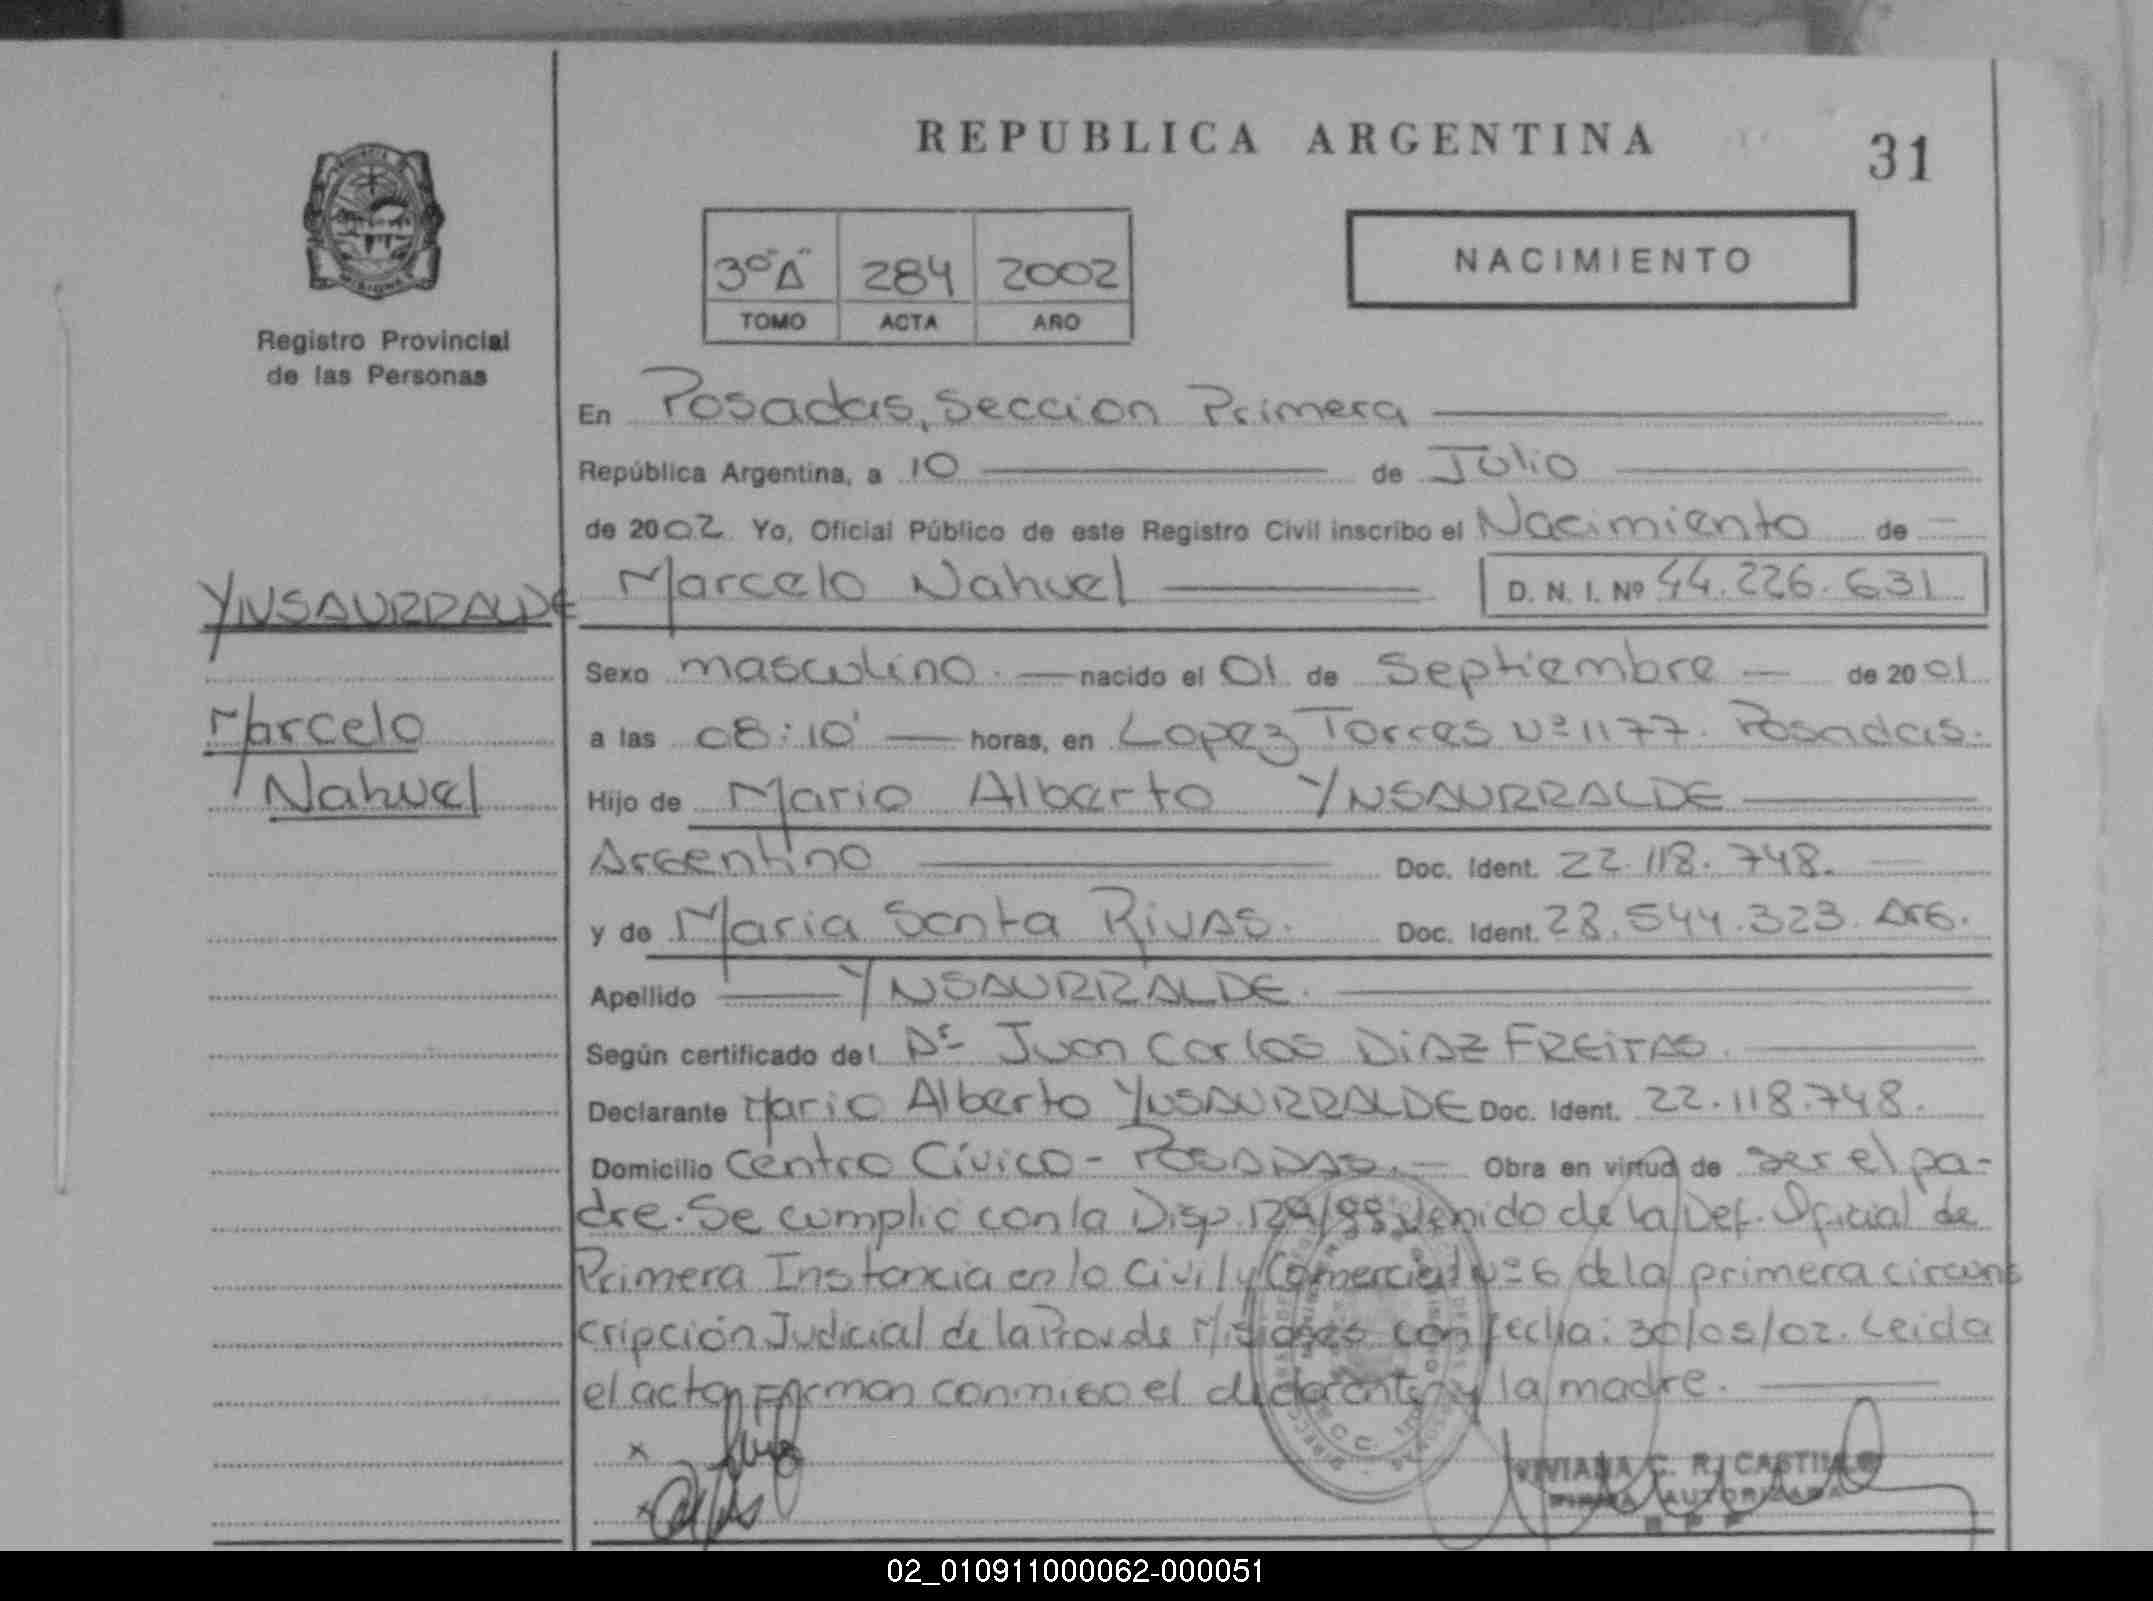 REPUBLICA ARGENTINA
31
Registro Provincial
de las Personas
3º"A" 284 2002
TOMO ACTA AÑO
NACIMIENTO
En Posadas, Seccion Primera
República Argentina, a 10 de Julio
de 2002 Yo, Oficial Público de este Registro Civil inscribo el Nacimiento de
YNSAURRALDE
Marcelo
Nahuel
Marcelo Nahuel D. N. I. Nº 44.226.631
Sexo masculino. nacido el 01 de Septiembre de 2001
a las 08:10' horas, en Lopez Torres Nº 1177. Posadas.
Hijo de Mario Alberto YNSAURRALDE
Argentino Doc. Ident. 22.118.748.
y de Maria Santa RIVAS. Doc. Ident. 28.544.323. Arg.
Apellido YNSAURRALDE.
Según certificado del Dr Juan Carlos DIAZ FREITAS.
Declarante Mario Alberto YNSAURRALDE Doc. Ident. 22.118.748.
Domicilio Centro Cívico - POSADAS. Obra en virtud de ser el pa-
dre. Se cumplio con la Disp. 129/98 venido de la Def. Oficial de
Primera Instancia en lo Civil y Comercial Nº 6 de la primera circuns
cripción Judicial de la Prov de Misiones con fecha: 30/05/02. Leida
el acta Firman conmigo el declarante y la madre.
VIVIANA C. R. CASTILLO
FIRMA AUTORIZADA
R P P
02_010911000062-000051